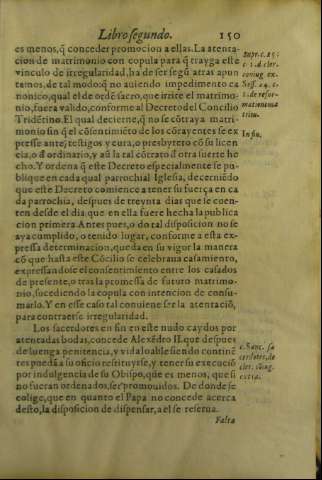 Libro segundo. 150
es menos, q̃ conceder promocion a ellas. La atenta-
cion de matrimonio con copula para q̃ trayga este
vinculo de irregularidad, ha de ser segũ atras apun
tamos, de tal modo: q̃ no auiendo impedimento ca
nonico, qual el de ordẽ sacro, que irrite el matrimo-
nio, fuera valido, conforme al Decreto del Concilio
Tridẽtino. El qual decierne, q̃ no se cõtraya matri-
monio sin q̃ el cõsentimiẽto de los cõtrayentes se ex
presse ante, testigos y cura, o presbytero cõ su licen
cia, o d ordinario, y aũ la tal cõtratò d otra fuerte he
cho. Y ordena q̃ este Decreto especialmente se pu-
blique en cada qual parrochial Iglesia, decerniẽdo
que este Decreto comience a tener su fuerça en ca
da parrochia, despues de treynta dias que le cuen-
ten desde el dia que en ella fuere hecha la publica
cion primera. Antes pues, o do tal disposicion no se
aya cumplido, o tenido lugar, conforme a esta ex-
pressa determinacion, queda en su vigor la manera
cõ que hasta este Cõcilio se celebraua casamiento,
expressandose el consentimiento entre los casados
de presente, o tras la promessa de futuro matrimo-
nio, sucediendo la copula con intencion de consu-
marlo. Y en esse caso tal conuiene ser la atentaciõ,
para contraerse irregularidad.
Los sacerdotes en fin en este nudo caydos por
atentadas bodas, concede Alexãdro II. que despues
de luenga penitencia, y vida loable siendo continẽ
tes puedã a su oficio restituyrse, y tener su execució
por indulgencia de su Obispo, que es menos, que si
no fueran ordenados, ser promouidos. De donde se
colige, que en quanto el Papa no concede acerca
desto, la disposicion de dispensar, a el se reserua.
Falta
Supr. c. 15.
c. 1. d cler.
coniug ex.
Sess. 24. c.
1. de refor-
matione ma
trim.
In fin.
c. Sanc. sa
cerdotes, de
cler. cõiug.
extra.